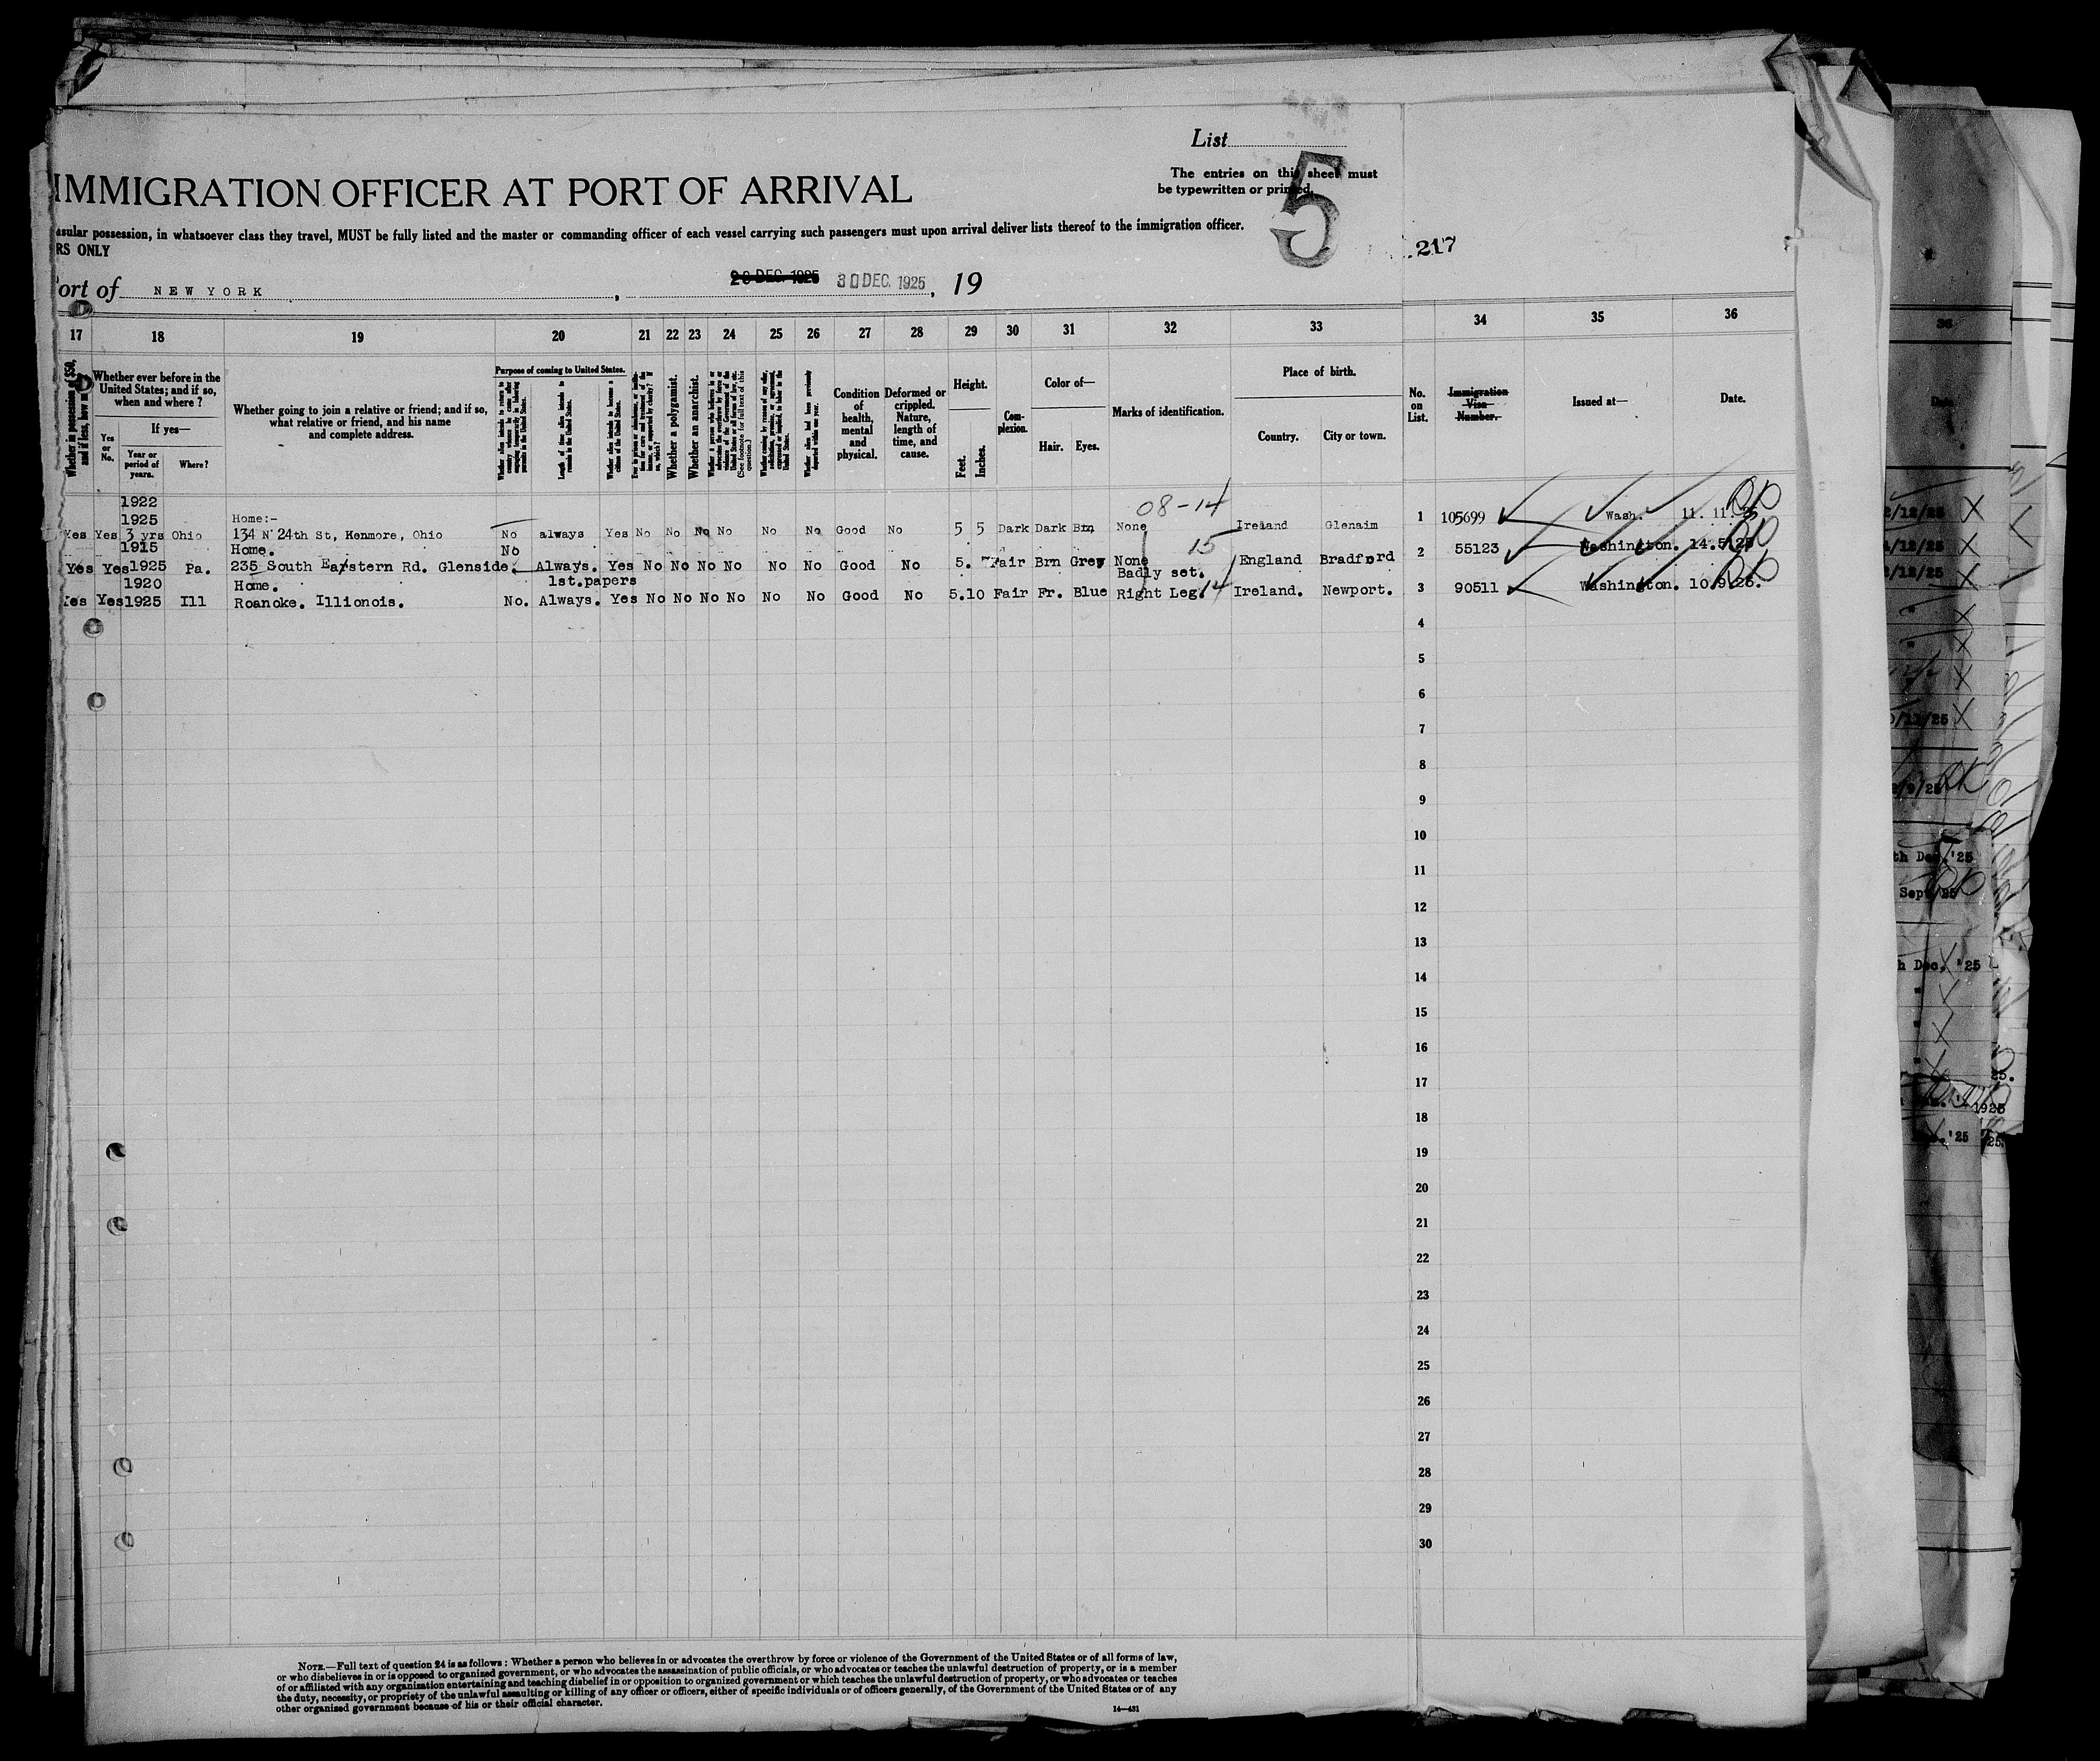 List
The entries on this sheet must
be typewritten or printed.
5
IMMIGRATION OFFICER AT PORT OF ARRIVAL
asular possession, in whatsoever class they travel, MUST be fully listed and the master or commanding officer of each vessel carrying such passengers must upon arrival deliver lists thereof to the immigration officer.
RS ONLY
217
ort of NEW YORK , 30 DEC. 1925 , 19
17 18 19 20 21 22 23 24 25 26 27 28 29 30 31 32 33 34 35 36
Whether ever before in the United States; and if so, when and where?
If yes—
Yes or No.
Year or period of years.
Where?
Whether going to join a relative or friend; and if so, what relative or friend, and his name and complete address.
Purpose of coming to United States.
Whether a polygamist.
Whether an anarchist.
Condition of health, mental and physical.
Deformed or crippled. Nature, length of time, and cause.
Height.
Feet.
Inches.
Complexion.
Color of—
Hair. Eyes.
Marks of identification.
Place of birth.
Country. City or town.
No. on List.
Immigration Visa Number.
Issued at—
Date.
1922
08-14
1925 Home:-
Yes Yes 3 yrs Ohio 134 N 24th St, Kenmore, Ohio No always Yes No No No No No No Good No 5 5 Dark Dark Brn None Ireland Glenaim 1 105699 Wash. 11. 11.
1915 Home. No 15
Yes Yes 1925 Pa. 235 South Eastern Rd. Glenside. Always. Yes No No No No No No Good No 5. 7 Fair Brn Grey None England Bradford 2 55123 Washington. 14.5.25
1920 Home. 1st.papers Badly set.
Yes Yes 1925 Ill Roanoke. Illionois. No. Always. Yes No No No No No No Good No 5.10 Fair Fr. Blue Right Leg. 14 Ireland. Newport. 3 90511 Washington. 10.9.25.
4
5
6
7
8
9
10
11
12
13
14
15
16
17
18
19
20
21
22
23
24
25
26
27
28
29
30
NOTE.—Full text of question 24 is as follows: Whether a person who believes in or advocates the overthrow by force or violence of the Government of the United States or of all forms of law,
or who disbelieves in or is opposed to organized government, or who advocates the assassination of public officials, or who advocates or teaches the unlawful destruction of property, or is a member
of or affiliated with any organization entertaining and teaching disbelief in or opposition to organized government or which teaches the unlawful destruction of property, or who advocates or teaches
the duty, necessity, or propriety of the unlawful assaulting or killing of any officer or officers, either of specific individuals or of officers generally, of the Government of the United States or of any
other organized government because of his or their official character.
14—431